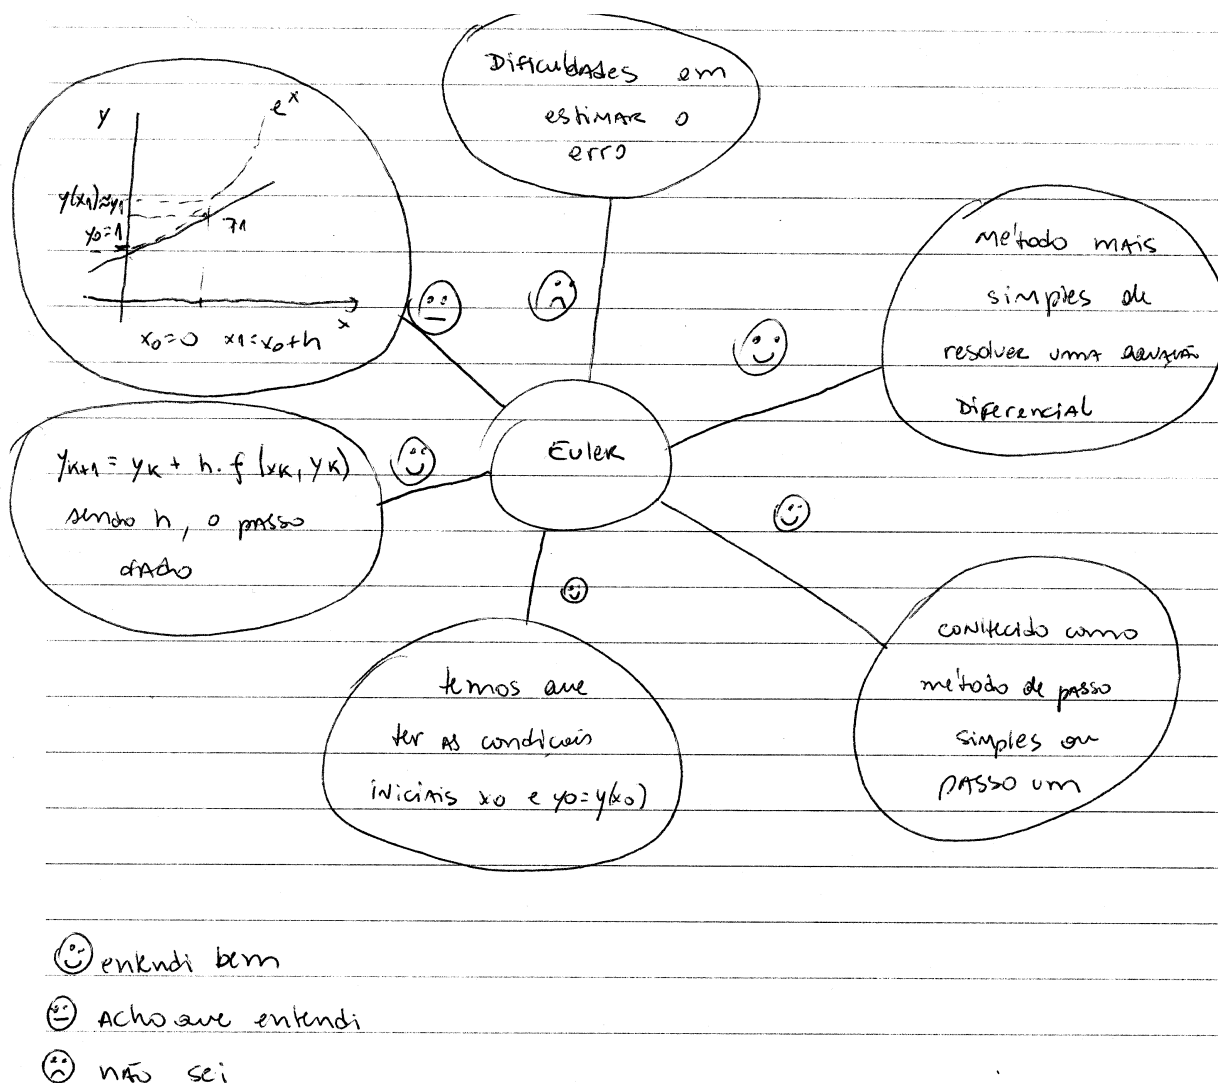 Dificuldades em
estimar o
erro
y
e^x
y(x1)≈y1
y0=1
x
x0=0 x1=x0+h
método mais
simples de
resolver uma equação
Diferencial
Euler
yk+1 = yk + h.f(xk, yk)
sendo h, o passo
dado
temos que
ter as condicois
iniciais x0 e y0=y(x0)
conhecido como
método de passo
simples ou
passo um
entendi bem
Acho que entendi
não sei